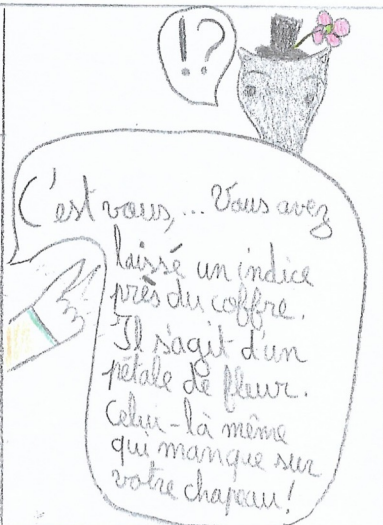 !?
C'est vous,... Vous avez
laissé un indice
près du coffre.
Il s'agit d'un
pétale de fleur.
Celui-là même
qui manque sur
votre chapeau!